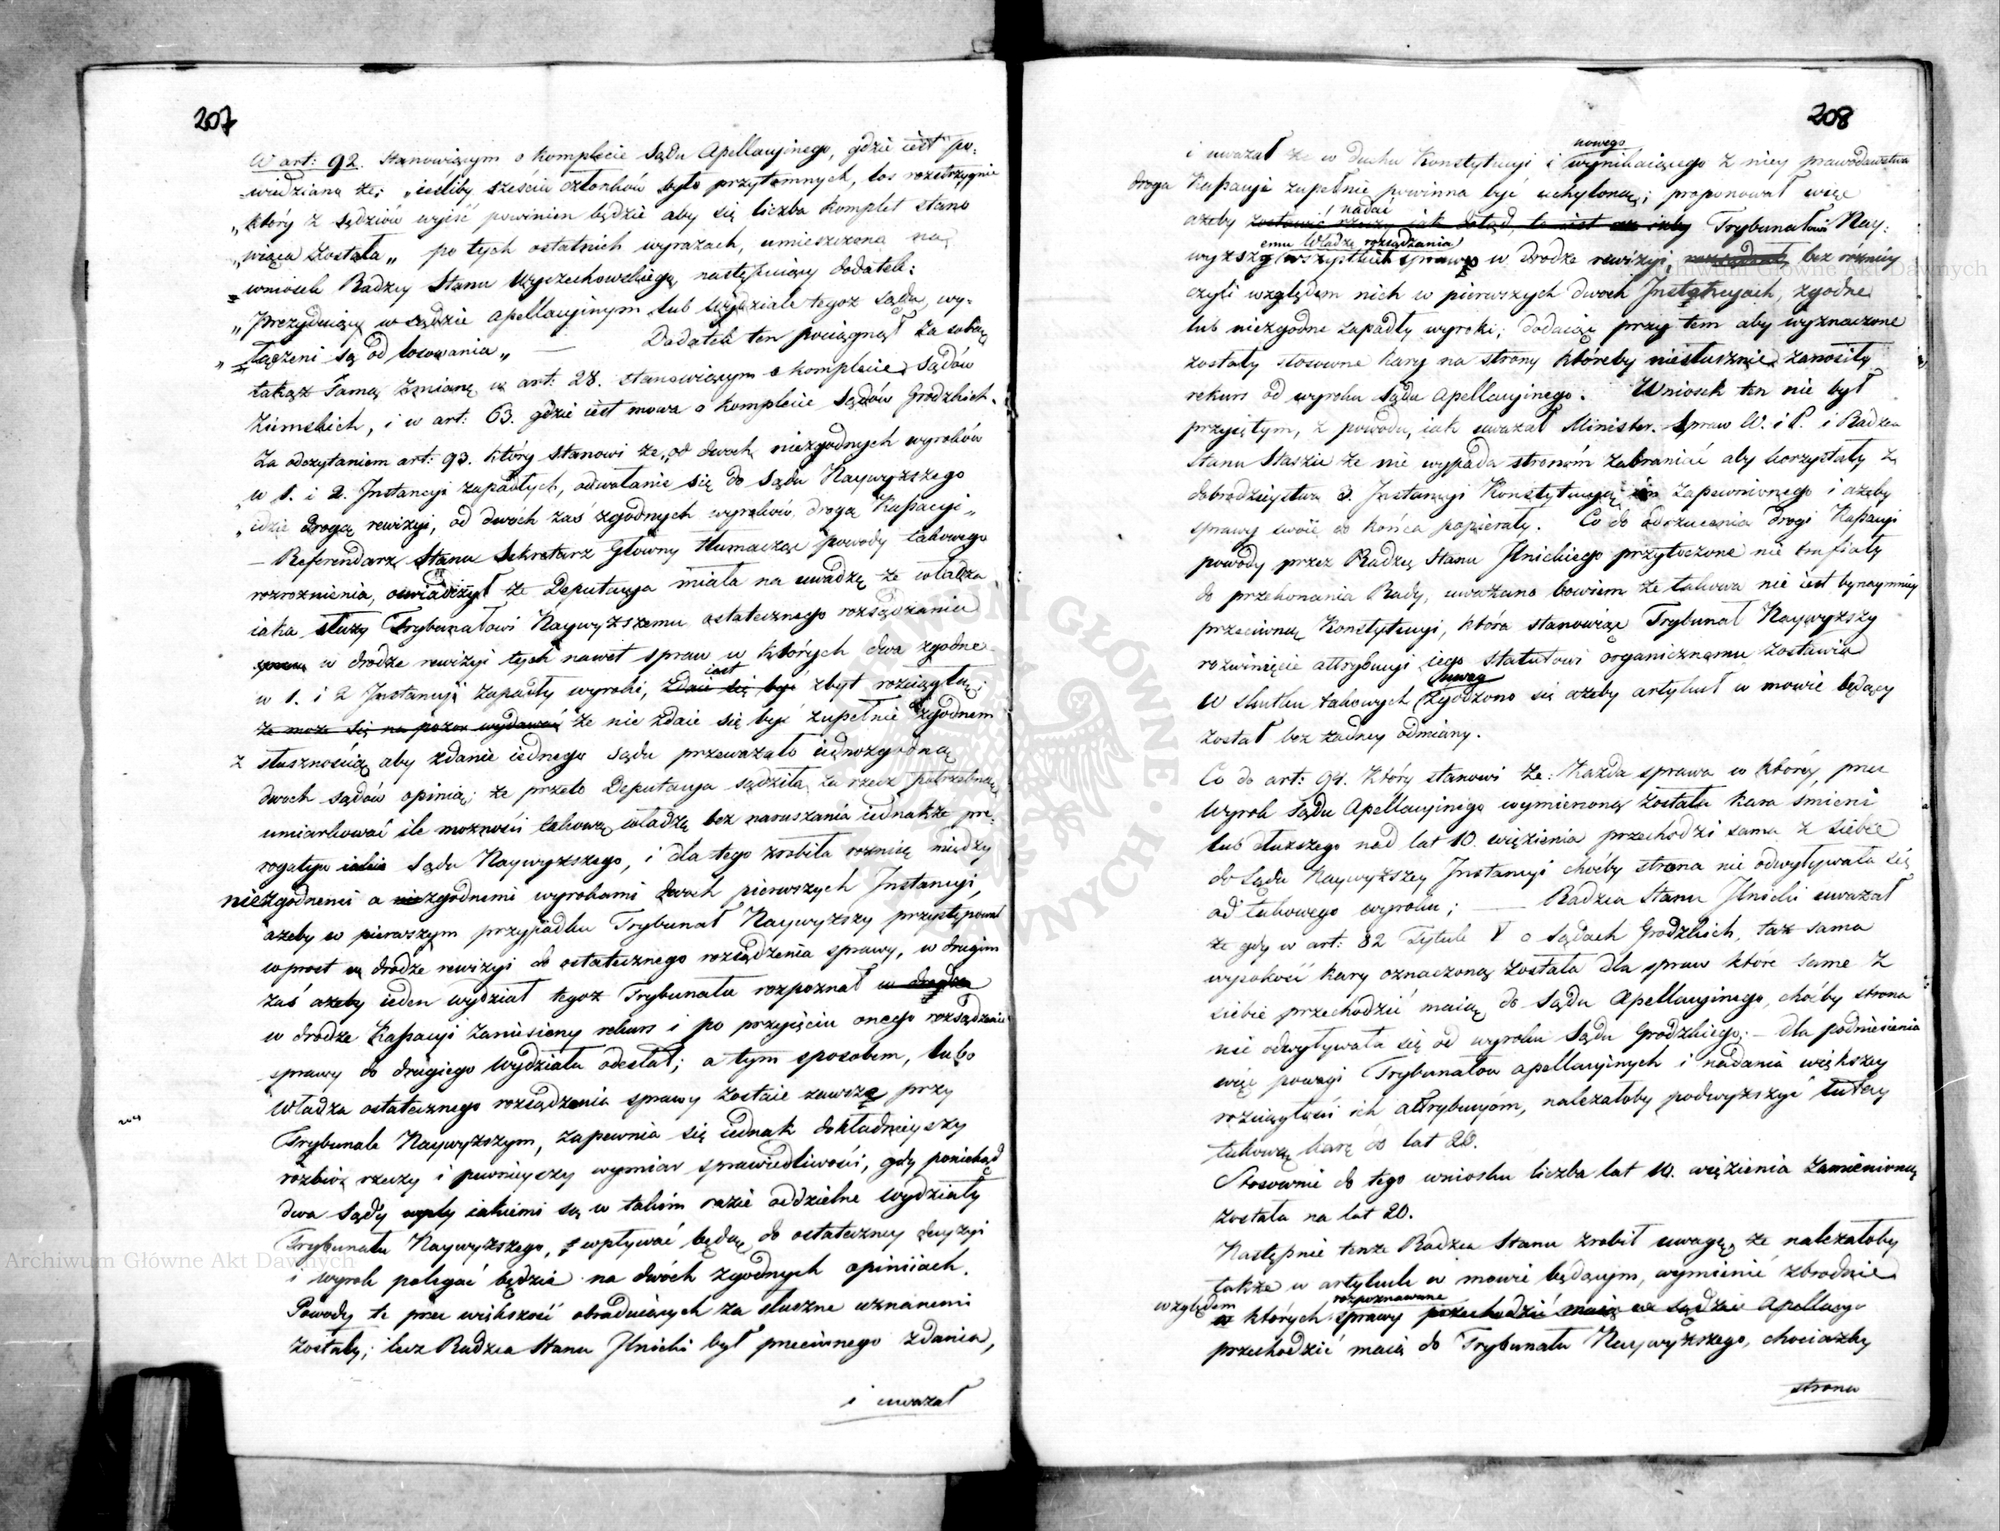 207
W art: 92. stanowiącym o komplecie Sądu Apellacyinego, gdzie iest po-
wiedziano że; „iedliby sześciu członków było przytomnych, los rozstrzygnie
„który z Sędziów wyiść powinien będzie aby się liczba komplet stano
„wiąca została„ po tych ostatnich wyrazach, umieszczono na
wniosek Radzcy Stanu Wyczechowskiego następuiący dodatek:
„Prezyduiący w sądzie apellacyinym lub wydziale tegoż sądu, wy-
„łączeni są od losowania„ — Dodatek ten pociągnął za sobą
takąż samą zmianę w art: 28. stanowiącym o komplecie Sądów
Ziemskich, i w art: 63. gdzie iest mowa o komplecie Sądów Grodzkich.
Za odczytaniem art: 93. który stanowi że „od dwóch niezgodnych wyroków
„w 1. i 2. Instancyi zapadłych, odwołanie się do Sądu Naywyższego
„idzie drogą rewizyi, od dwóch zaś zgodnych wyroków drogą Kassacyi„
— Referendarz Stanu Sekretarz Główny tłumacząc powody takowego
rozróżnienia, oświadczył że Deputacya miała na uwadze że władza
iaka służy Trybunałowi Naywyższemu ostatecznego rozsądzania
w drodze rewizyi tych nawet spraw w których dwa zgodne
w 1. i 2 Instancyi zapadły wyroki, zdaie się być iest zbyt rozciągłą;
że może się na pozor wydawać że nie zdaie się być zupełnie zgodnem
z słusznością aby zdanie iednego sądu przeważało iednozgodną
dwóch sądów opinią; że przeto Deputacya sądziła za rzecz potrzebną
umiarkować ile możności takową władzę bez naruszania iednakże pre-
rogatyw Sądu Naywyższego, i dla tego zrobiła różnicę między
niezgodnemi a niezgodnemi wyrokami dwóch pierwszych Instancyi,
ażeby w pierwszym przypadku Trybunał Naywyższy przystępował
wprost w drodze rewizyi do ostatecznego rozsądzenia sprawy, w drugim
zaś ażeby ieden wydział tegoż Trybunału rozpoznał w drodze
w drodze Kassacyi zaniesiony rekurs i po przyięciu onego rozsądzenie
sprawy do drugiego Wydziału odesłał; a tym sposobem, lubo
Władza ostatecznego rozsądzenia sprawy zostaie zawsze przy
Trybunale Naywyższym, zapewnia się iednak dokładnieyszy
rozbior rzeczy i pewnieyszy wymiar sprawiedliwości, gdy poniekąd
dwa Sądy iakiemi są w takim razie oddzielne Wydziały
Trybunału Naywyższego, wpływać będą do ostateczney decyzyi
i wyrok polegać będzie na dwóch zgodnych opiniiach.
Powody te przez większość obraduiących za słuszne uznanemi
zostały; lecz Radzca Stanu Ilnicki był przeciwnego zdania,
i uważał
208
i uważał że w duchu Konstytucyi i nowego wynikaiącego z niey prawodawstwa
droga Kassacyi zupełnie powinna być uchyloną; proponował więc
ażeby zostawić rzeczy iak dotąd, to iest nadać Trybunałowi Nay-
wyższemu Władzę rozsądzania wszystkich spraw w drodze rewizyi, bez różnicy
czyli względem nich w pierwszych dwóch Instancyach, zgodne
lub niezgodne zapadły wyroki; dodaiąc przy tem aby wyznaczone
zostały stosowne kary na strony któreby niesłusznie zanosiły
rekurs od wyroku Sądu Apellacyinego. Wniosek ten nie był
przyiętym, z powodu, iak uważał Minister Spraw W. i P. i Radzca
Stanu Staszic że nie wypada stronom zabraniać aby korzystały z
dobrodzieystwa 3. Instancyi Konstytucyą zapewnionego i ażeby
sprawy swoie do końca popierały. Co do odrzucenia drogi Kassacyi
powody przez Radzcę Stanu Ilnickiego przytoczone nie trafiały
do przekonania Rady, uważano bowiem że takowa nie iest bynaymniey
przeciwną Konstytucyi, która stanowiąc Trybunał Naywyższy
rozwinięcie attrybucyi iego statutowi organicznemu zostawia
W skutku takowych uwag zgodzono się ażeby artykuł w mowie będący
został bez żadney odmiany.
Co do art: 94. który stanowi że: Każda sprawa w którey, przez
Wyrok Sądu Apellacyinego wymienioną została kara śmierci
lub dłuższego nad lat 10. więzienia przechodzi sama z siebie
do Sądu Naywyższey Instancyi choćby strona nie odwoływała się
od takowego wyroku; — Radzca Stanu Ilnicki uważał
że gdy w art: 82 Tytule V o Sądach Grodzkich, taż sama
wysokość kary oznaczoną została dla spraw które same z
siebie przechodzić maią do Sądu Apellacyinego, choćby strona
nie odwoływała się od wyroku Sądu Grodzkiego; — dla podniesienia
więc powagi Trybunałów apellacyinych i nadania większey
rozciągłości ich attrybucyom, należałoby podwyższyć tutay
takową karę do lat 20.
Stosownie do tego wniosku liczba lat 10. więzienia zamienioną
została na lat 20.
Następnie tenże Radzca Stanu zrobił uwagę, że należałoby
także w artykule w mowie będącym, wymienić zbrodnie
względem których sprawy rozpoznawane przechodzić maią w Sądzie Apellacyi
przechodzić maią do Trybunału Naywyższego, chociażby
strona
Archiwum Główne Akt Dawnych
Archiwum Główne Akt Dawnych
ARCHIWUM GŁÓWNE AKT DAWNYCH